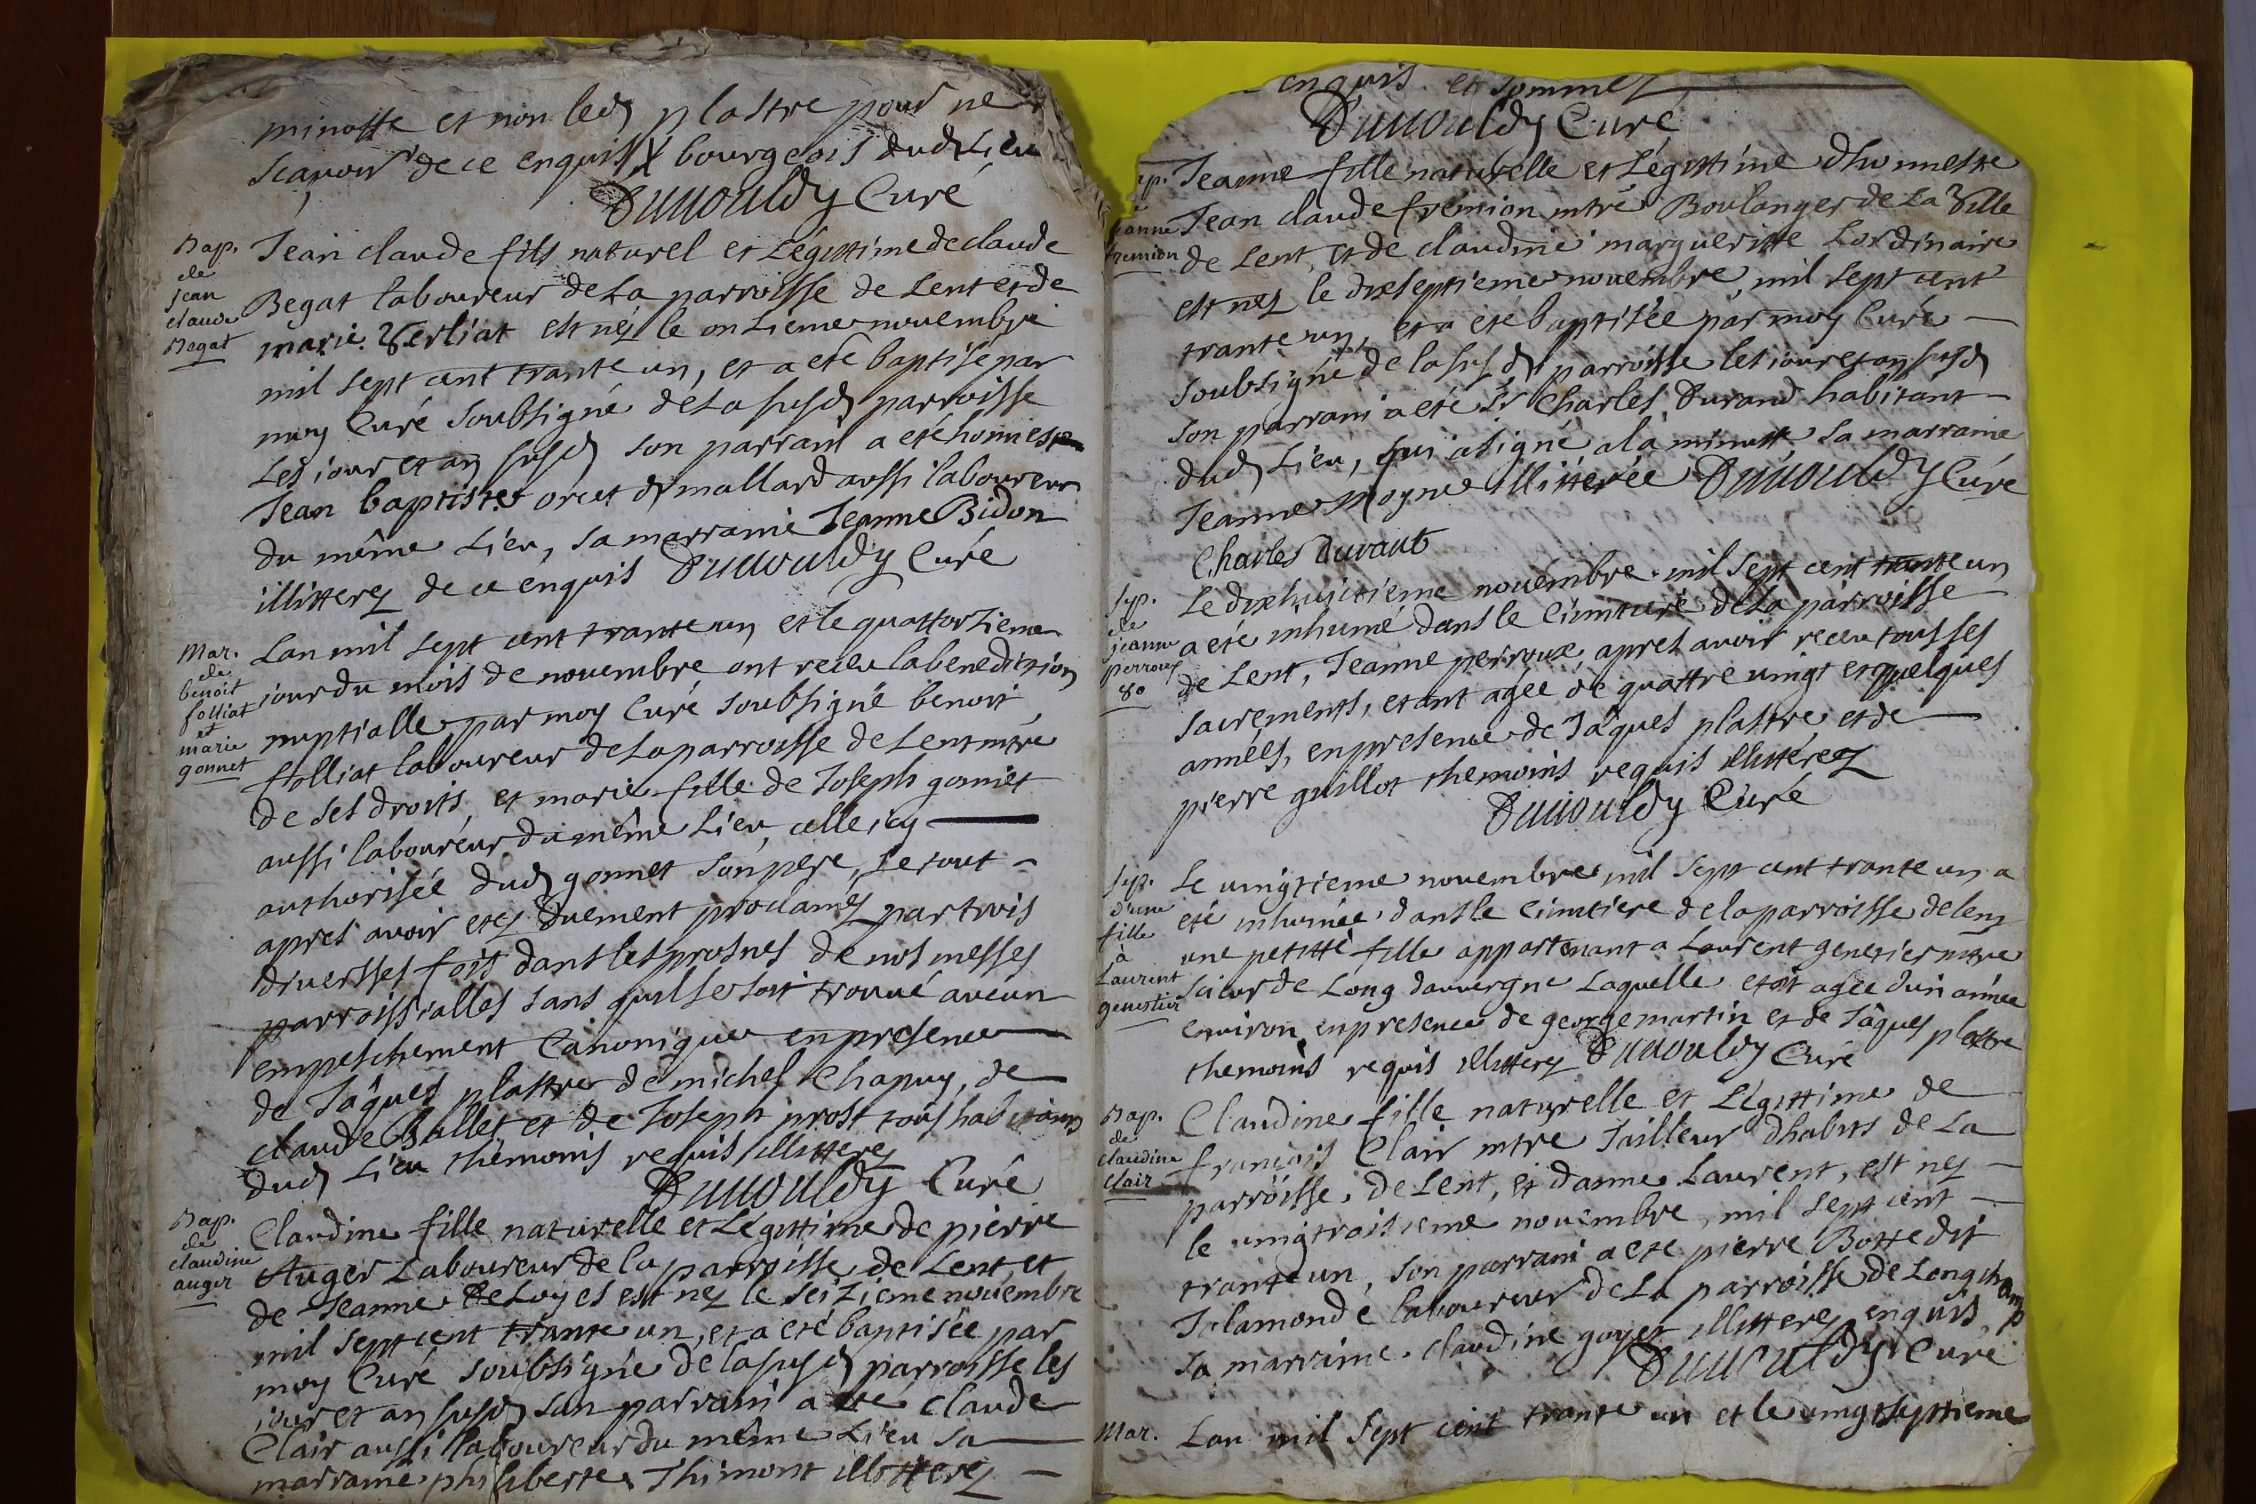 minotte et non led plastre pour ne
scavoir de ce enquis bourgeois dud Lieu
Dunouldy Curé
Bap.
de
jean
claude
Begat
Jean claude fils naturel et Légittime de claude
Begat laboureur de La parroisse de Lent et de
marie Verliat est néz le onzieme novembre
mil sept cent trante un, et a eté baptisé par
moy Curé Soubsigné de La susd parroisse
Les jour et an susd son parrain a eté honneste
Jean baptiste orcet d mallard aussi laboureur
du même Lieu, sa marraine Jeanne Bidon
illitterez de ce enquis Dunouldy Curé
Mar.
de
benoit
folliat
et
marie
gonnet
Lan mil sept cent trante un et le quattorzieme
jour du mois de novembre ont receu la benediction
nuptialle par moy Curé soubsigné benoit
folliat laboureur de La parroisse de Lent mtre
de ses droits et marie fille de Joseph gonnet
aussi laboureur du même Lieu, celle icy
authorisée dud gonnet son pere, Le tout
apres avoir etez duement proclaméz par trois
diversses fois dans les prosnes de nos messes
parroissialles sans quil se soit trouvé aucun
empeschement Canonique en presence
de Jâques plastre de michel Chapuy, de
claude Bullet et de Joseph prost tous habitans
dud Lieu themoins requis illitterez
Dunouldy Curé
Bap.
de
claudine
auger
Claudine fille naturelle et Légittime de pierre
Auger Laboureur de la parroisse de Lent et
de Jeanne DeLoyes est nez le seizieme novembre
mil sept cent trante un, et a eté baptisée par
moy Curé soubsigné de la susd parroisse les
jour et an susd son parrain a eté claude
Clair aussi laboureur du même Lieu sa
marraine philiberte Thimont illitterez
enquis et sommez
Dunouldy Curé
Jeanne fille naturelle et Légittime dhonneste
Jean claude fremion mtre Boulanger de La Ville
de Lent, et de claudine margueritte Lordinaire
est nez le dixseptieme novembre, mil sept cent
trante un, et a eté baptisée par moy Curé
soubsigné de la susd parroisse les jour et an susd
son parrain a eté Sr Charles Durand habitant
dud Lieu, qui a signé a la minutte, sa marraine
Jeanne Moyne illitterée Dunouldy Curé
Charles Durant
Sep.
de
jeanne
perroux
80
Le dixhuictieme novembre mil sept cent trante un
a eté inhumé dans le Cimitiere de La parroisse
de Lent, Jeanne perroux, apres avoir receu tous ses
sacrements, etant agée de quattre vingt et quelques
années, en presence de Jâques plastre et de
pierre guillot themoins requis illitterez
Dunouldy Curé
Sep.
d'une
fille
a
Laurent
genestier
Le vingtieme novembre mil sept cent trante un a
eté inhumée dans le Cimitiere de la parroisse de Lent
une petitte fille appartenant a Laurent genetier mtre
scieur de Long dauvergne Laquelle etoit agée dun année
environ, en presence de george martin et de Jâques plastre
themoins requis illitterez Dunouldy Curé
Bap.
de
claudine
clair
Claudine fille naturelle et Légittime de
francois Clair mtre Tailleur dhabits de La
parroisse de Lent, et danne Laurent, est nez
le vingtroisieme novembre, mil sept cent
trante un, son parrain a eté pierre Botte dit
Jalamonde laboureur de La parroisse de Longchamp
sa marraine claudine goyet illitterez enquis
Dunouldy Curé
Mar.
Lan mil sept cent trante un et le vingtseptieme